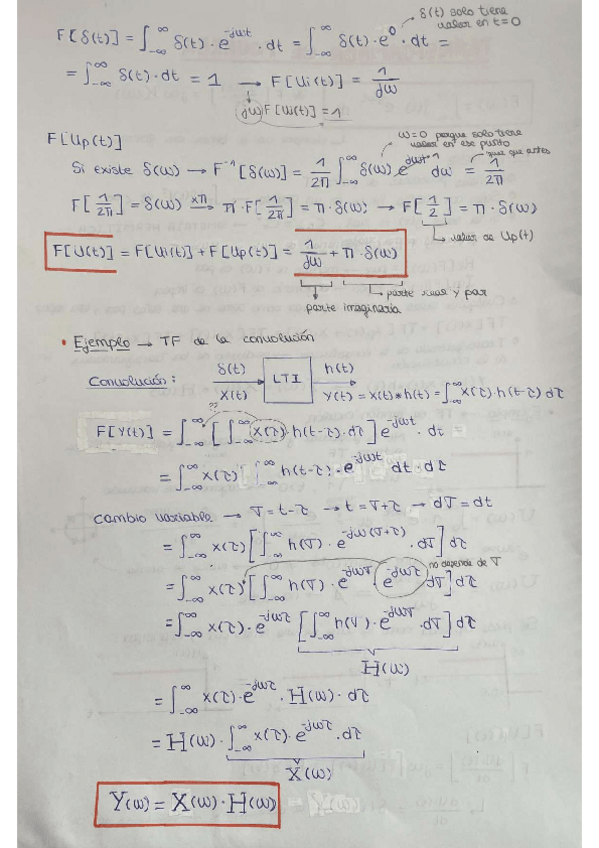 δ(t) solo tiene
valor en t=0
F[δ(t)] = ∫_{-∞}^{∞} δ(t)·e^{-jωt}·dt = ∫_{-∞}^{∞} δ(t)·e^0·dt =
= ∫_{-∞}^{∞} δ(t)·dt = 1 → F[Ui(t)] = 1/jω
jω F[Ui(t)] = 1
F[Up(t)]
ω=0 porque solo tiene
valor en ese punto
igual que antes
Si existe δ(ω) → F^{-1}[δ(ω)] = 1/2π ∫_{-∞}^{∞} δ(ω) e^{jωt} dω = 1/2π
F[1/2π] = δ(ω) —×π→ π·F[1/2π] = π·δ(ω) → F[1/2] = π·δ(ω)
valor de Up(t)
F[U(t)] = F[Ui(t)] + F[Up(t)] = 1/jω + π·δ(ω)
parte real y par
parte imaginaria
• Ejemplo → TF de la convolución
Convolución: δ(t) → LTI → h(t)
x(t) y(t) = x(t)*h(t) = ∫_{-∞}^{∞} x(τ)·h(t-τ) dτ
F[Y(t)] = ∫_{-∞}^{∞} [∫_{-∞}^{∞} x(τ)·h(t-τ)·dτ] e^{-jωt}·dt
= ∫_{-∞}^{∞} x(τ) ∫_{-∞}^{∞} h(t-τ)·e^{-jωt} dt·dτ
Cambio variable → T = t-τ → t = T+τ → dT = dt
= ∫_{-∞}^{∞} x(τ) [∫_{-∞}^{∞} h(T)·e^{-jω(T+τ)}·dT] dτ
no depende de T
= ∫_{-∞}^{∞} x(τ) [∫_{-∞}^{∞} h(T)·e^{-jωT} e^{-jωτ} dT] dτ
= ∫_{-∞}^{∞} x(τ)·e^{-jωτ} [∫_{-∞}^{∞} h(T)·e^{-jωT}·dT] dτ
H(ω)
= ∫_{-∞}^{∞} x(τ)·e^{-jωτ}·H(ω)·dτ
= H(ω)·∫_{-∞}^{∞} x(τ)·e^{-jωτ}·dτ
X(ω)
Y(ω) = X(ω)·H(ω)